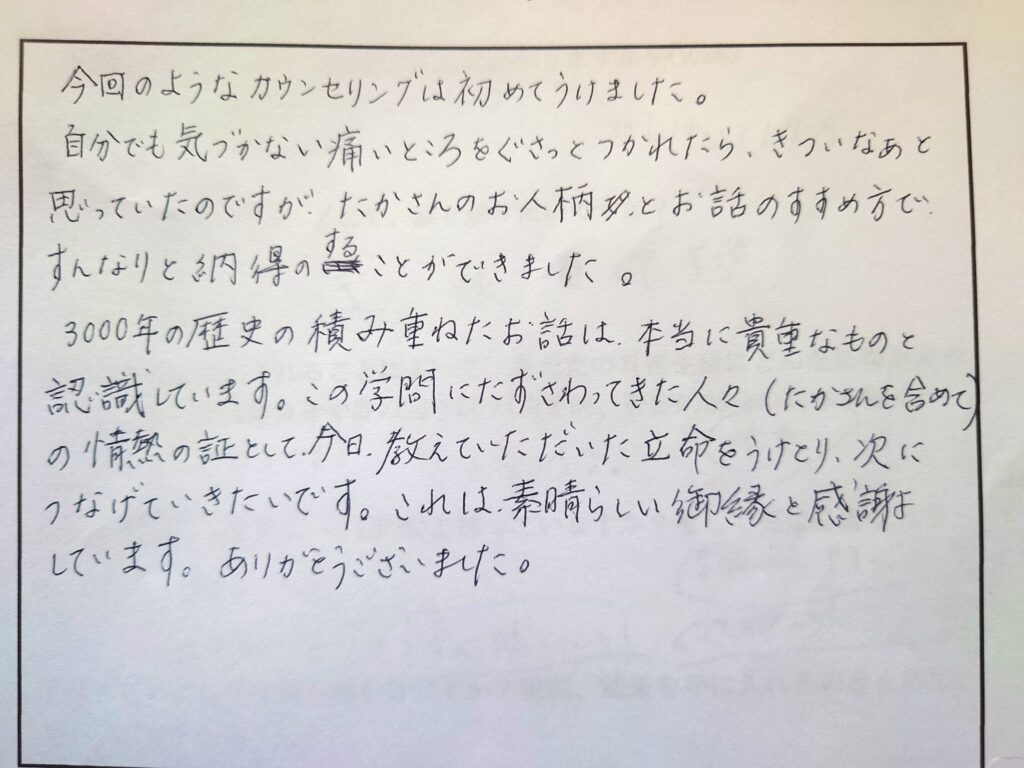 今回のようなカウンセリングは初めてうけました。
自分でも気づかない痛いところをぐさっとつかれたら、きついなぁと
思っていたのですが、たかさんのお人柄とお話のすすめ方で、
すんなりと納得のすることができました。
3000年の歴史の積み重ねたお話は、本当に貴重なものと
認識しています。この学問にたずさわってきた人々(たかさんを含めて)
の情熱の証として、今日、教えていただいた立命をうけとり、次に
つなげていきたいです。これは、素晴らしい御縁と感謝
しています。ありがとうございました。